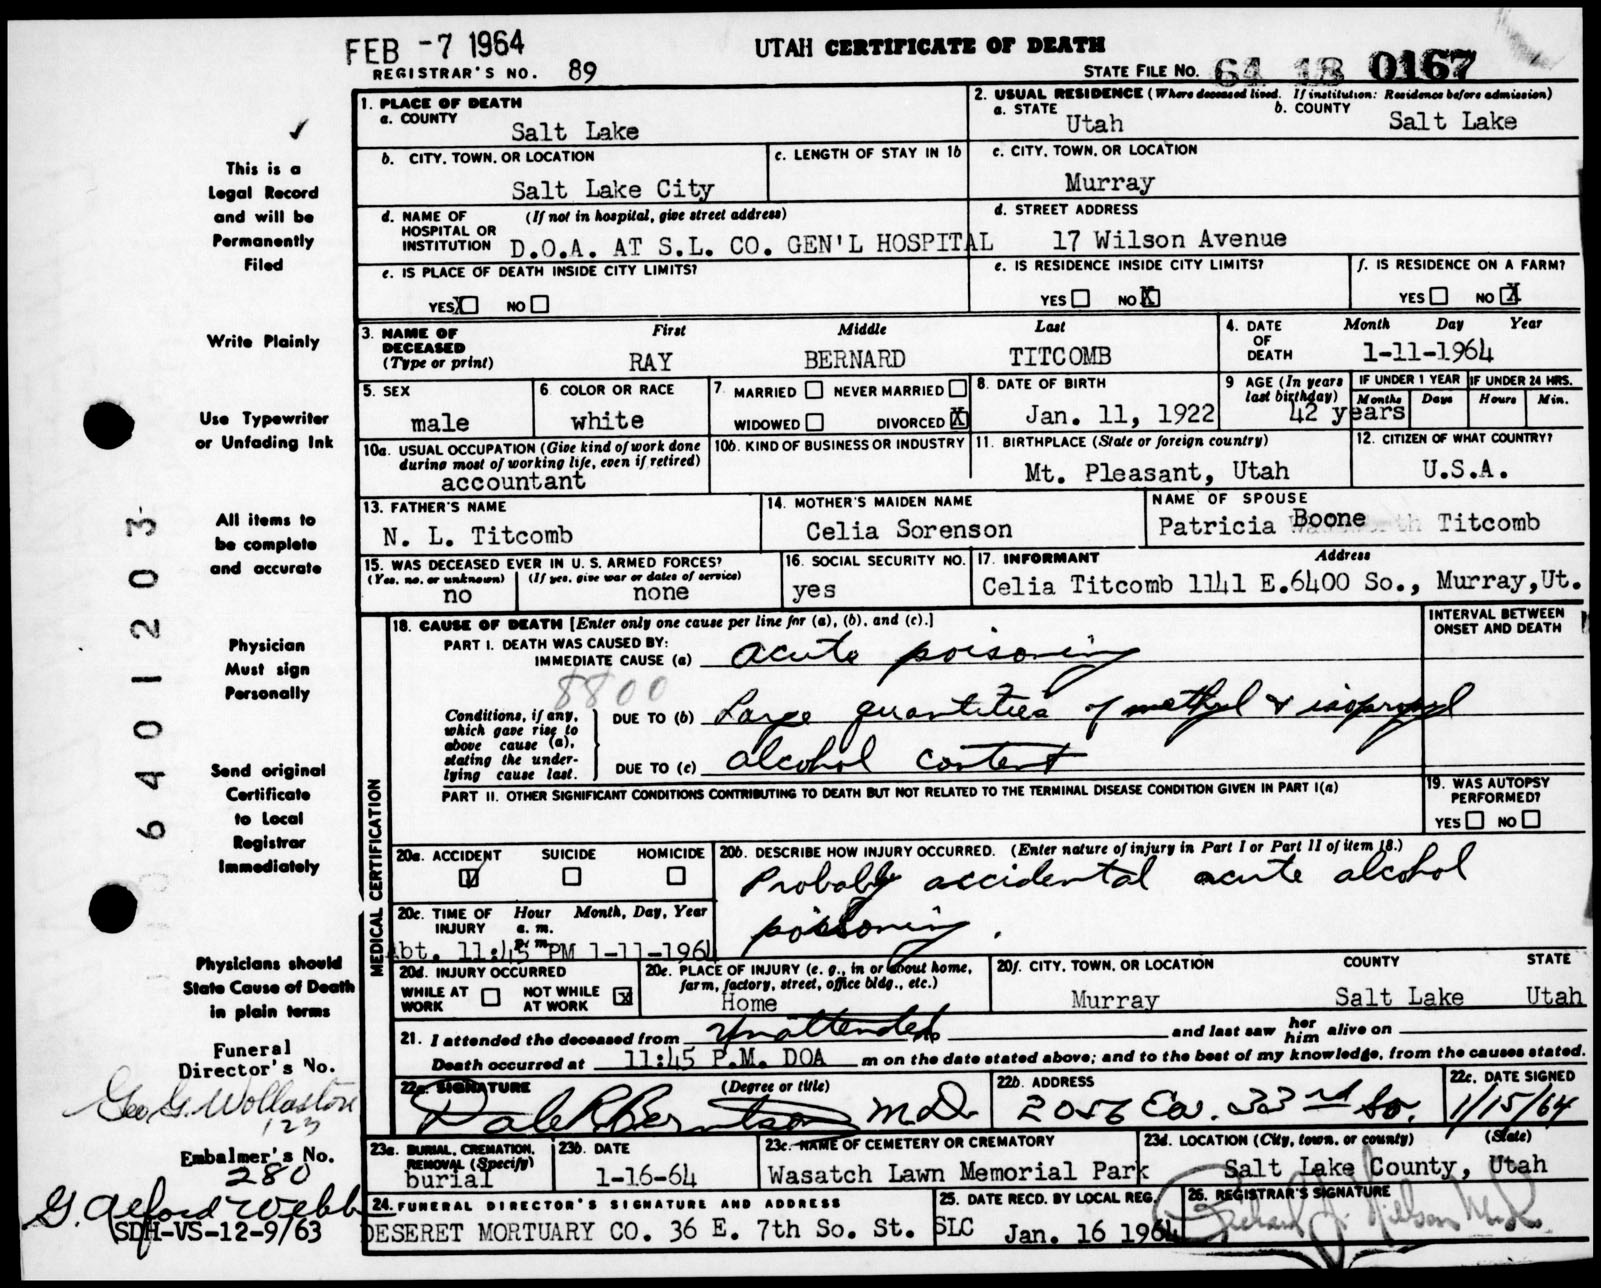 FEB -7 1964
UTAH CERTIFICATE OF DEATH
REGISTRAR'S NO. 89
STATE FILE NO. 64 18 0167
1. PLACE OF DEATH
a. COUNTY
Salt Lake
2. USUAL RESIDENCE (Where deceased lived. If institution: Residence before admission)
a. STATE Utah
b. COUNTY Salt Lake
b. CITY, TOWN, OR LOCATION
Salt Lake City
c. LENGTH OF STAY IN 1b
c. CITY, TOWN, OR LOCATION
Murray
d. NAME OF HOSPITAL OR INSTITUTION (If not in hospital, give street address)
D.O.A. AT S.L. CO. GEN'L HOSPITAL
d. STREET ADDRESS
17 Wilson Avenue
e. IS PLACE OF DEATH INSIDE CITY LIMITS?
YES X NO
e. IS RESIDENCE INSIDE CITY LIMITS?
YES NO X
f. IS RESIDENCE ON A FARM?
YES NO X
3. NAME OF DECEASED (Type or print)
First Middle Last
RAY BERNARD TITCOMB
4. DATE OF DEATH Month Day Year
1-11-1964
5. SEX
male
6. COLOR OR RACE
white
7. MARRIED NEVER MARRIED
WIDOWED DIVORCED X
8. DATE OF BIRTH
Jan. 11, 1922
9 AGE (In years last birthday)
42 years
IF UNDER 1 YEAR IF UNDER 24 HRS.
Months Days Hours Min.
10a. USUAL OCCUPATION (Give kind of work done during most of working life, even if retired)
accountant
10b. KIND OF BUSINESS OR INDUSTRY
11. BIRTHPLACE (State or foreign country)
Mt. Pleasant, Utah
12. CITIZEN OF WHAT COUNTRY?
U.S.A.
13. FATHER'S NAME
N. L. Titcomb
14. MOTHER'S MAIDEN NAME
Celia Sorenson
NAME OF SPOUSE
Patricia Boone Titcomb
15. WAS DECEASED EVER IN U. S. ARMED FORCES?
(Yes, no, or unknown) (If yes, give war or dates of service)
no none
16. SOCIAL SECURITY NO.
yes
17. INFORMANT Address
Celia Titcomb 1141 E.6400 So., Murray,Ut.
MEDICAL CERTIFICATION
18. CAUSE OF DEATH [Enter only one cause per line for (a), (b), and (c).]
INTERVAL BETWEEN ONSET AND DEATH
PART I. DEATH WAS CAUSED BY:
IMMEDIATE CAUSE (a) acute poisoning
8800
Conditions, if any, which gave rise to above cause (a), stating the underlying cause last.
DUE TO (b) Large quantities of methyl & isopropyl
DUE TO (c) alcohol content
PART II. OTHER SIGNIFICANT CONDITIONS CONTRIBUTING TO DEATH BUT NOT RELATED TO THE TERMINAL DISEASE CONDITION GIVEN IN PART I(a)
19. WAS AUTOPSY PERFORMED?
YES NO
20a. ACCIDENT SUICIDE HOMICIDE
20b. DESCRIBE HOW INJURY OCCURRED. (Enter nature of injury in Part I or Part II of item 18.)
Probably accidental acute alcohol
poisoning.
20c. TIME OF INJURY Hour Month, Day, Year
a. m.
p. m.
Abt. 11:45 PM 1-11-1964
20d. INJURY OCCURRED
WHILE AT WORK NOT WHILE AT WORK X
20e. PLACE OF INJURY (e. g., in or about home, farm, factory, street, office bldg., etc.)
Home
20f. CITY, TOWN, OR LOCATION COUNTY STATE
Murray Salt Lake Utah
21. I attended the deceased from Unattended to and last saw her him alive on
Death occurred at 11:45 P.M. DOA m on the date stated above; and to the best of my knowledge, from the causes stated.
22a. SIGNATURE (Degree or title)
Dale R Berntson M.D.
22b. ADDRESS
2056 Ea. 33rd So.
22c. DATE SIGNED
1/15/64
23a. BURIAL, CREMATION, REMOVAL (Specify)
burial
23b. DATE
1-16-64
23c. NAME OF CEMETERY OR CREMATORY
Wasatch Lawn Memorial Park
23d. LOCATION (City, town, or county) (State)
Salt Lake County, Utah
24. FUNERAL DIRECTOR'S SIGNATURE AND ADDRESS
DESERET MORTUARY CO. 36 E. 7th So. St. SLC
25. DATE RECD. BY LOCAL REG.
Jan. 16 1964
26. REGISTRAR'S SIGNATURE
This is a
Legal Record
and will be
Permanently
Filed
Write Plainly
Use Typewriter
or Unfading Ink
All items to
be complete
and accurate
Physician
Must sign
Personally
Send original
Certificate
to Local
Registrar
Immediately
Physicians should
State Cause of Death
in plain terms
Funeral
Director's No.
Geo. G. Wollaston
123
Embalmer's No.
280
G. Alford Webb
SDH-VS-12-9/63
6401203